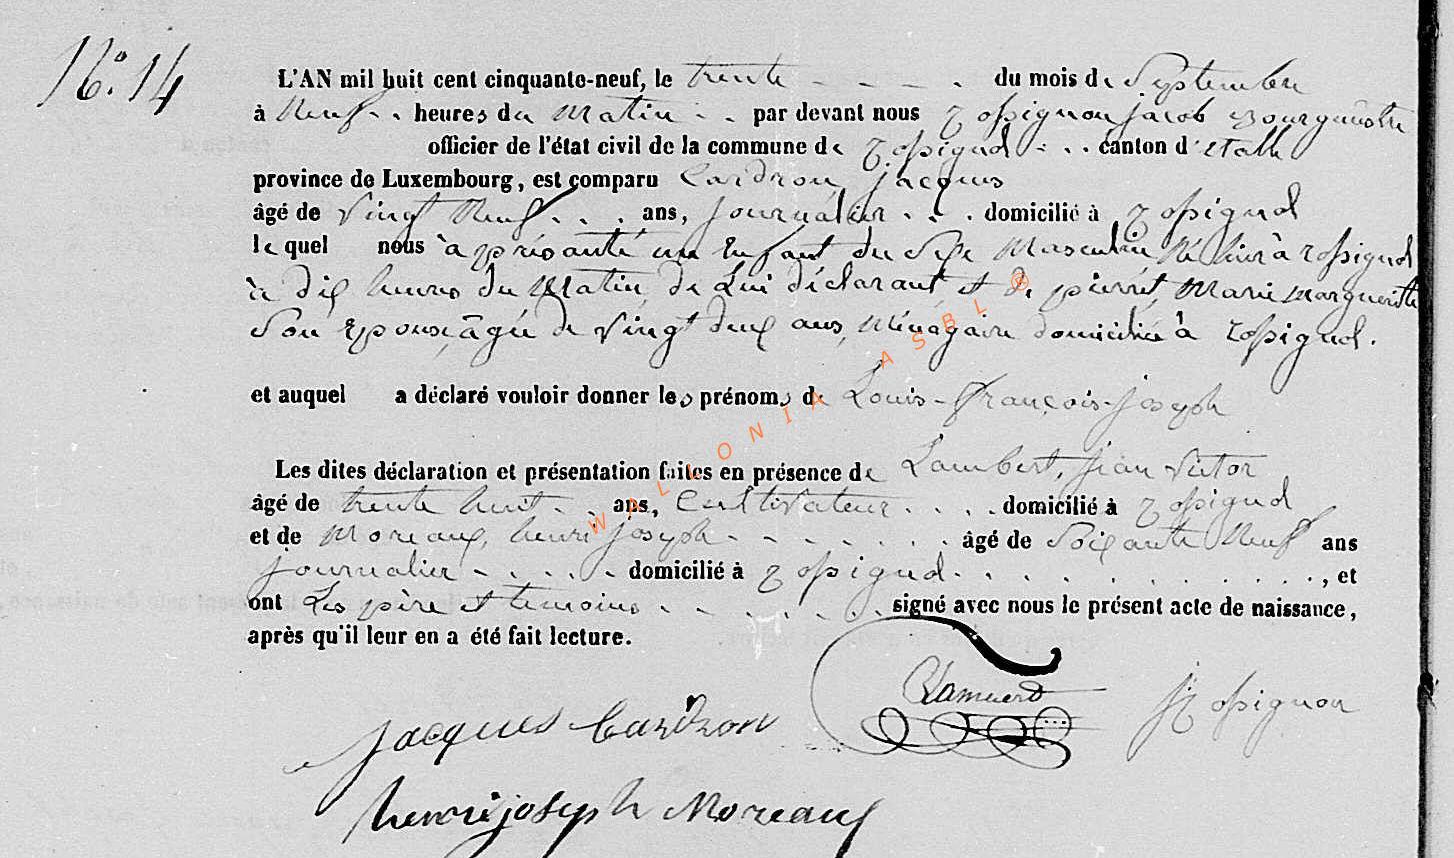 N.º 14
L'AN mil huit cent cinquante-neuf, le trente - - - - du mois de Septembre
à Neuf - - heures du Matin - - par devant nous Rossignon jacob Bourgmestre
officier de l'état civil de la commune de Rossignol - - - canton d'Etalle
province de Luxembourg, est comparu Cardron, jacques
âgé de Vingt Neuf . . . ans, journalier . . . domicilié à Rossignol
le quel nous à présanté un Enfant du Sexe Masculin Né hier à rossignol
à dix heures du Matin, de Lui déclarant, et de pierret, Marie Margueritte
Son Epouse, âgée de Vingt deux ans, Ménagaire domiciliée à rossignol.
et auquel a déclaré vouloir donner les prénoms de Louis-François-joseph
Les dites déclaration et présentation faites en présence de Lambert, jean Victor
âgé de trente huit . . ans, Cultivateur . . . . domicilié à Rossignol
et de Moreaux, henri joseph - - - - - - - âgé de Soixante Neuf ans
journalier - - - - - domicilié à Rossignol . . . . . . . . . . . . , et
ont Les père et temoins - - - - - - signé avec nous le présent acte de naissance,
après qu'il leur en a été fait lecture.
jacques Cardron
Rossignon
henri joseph Moreaux
WALLONIA ASBL ®